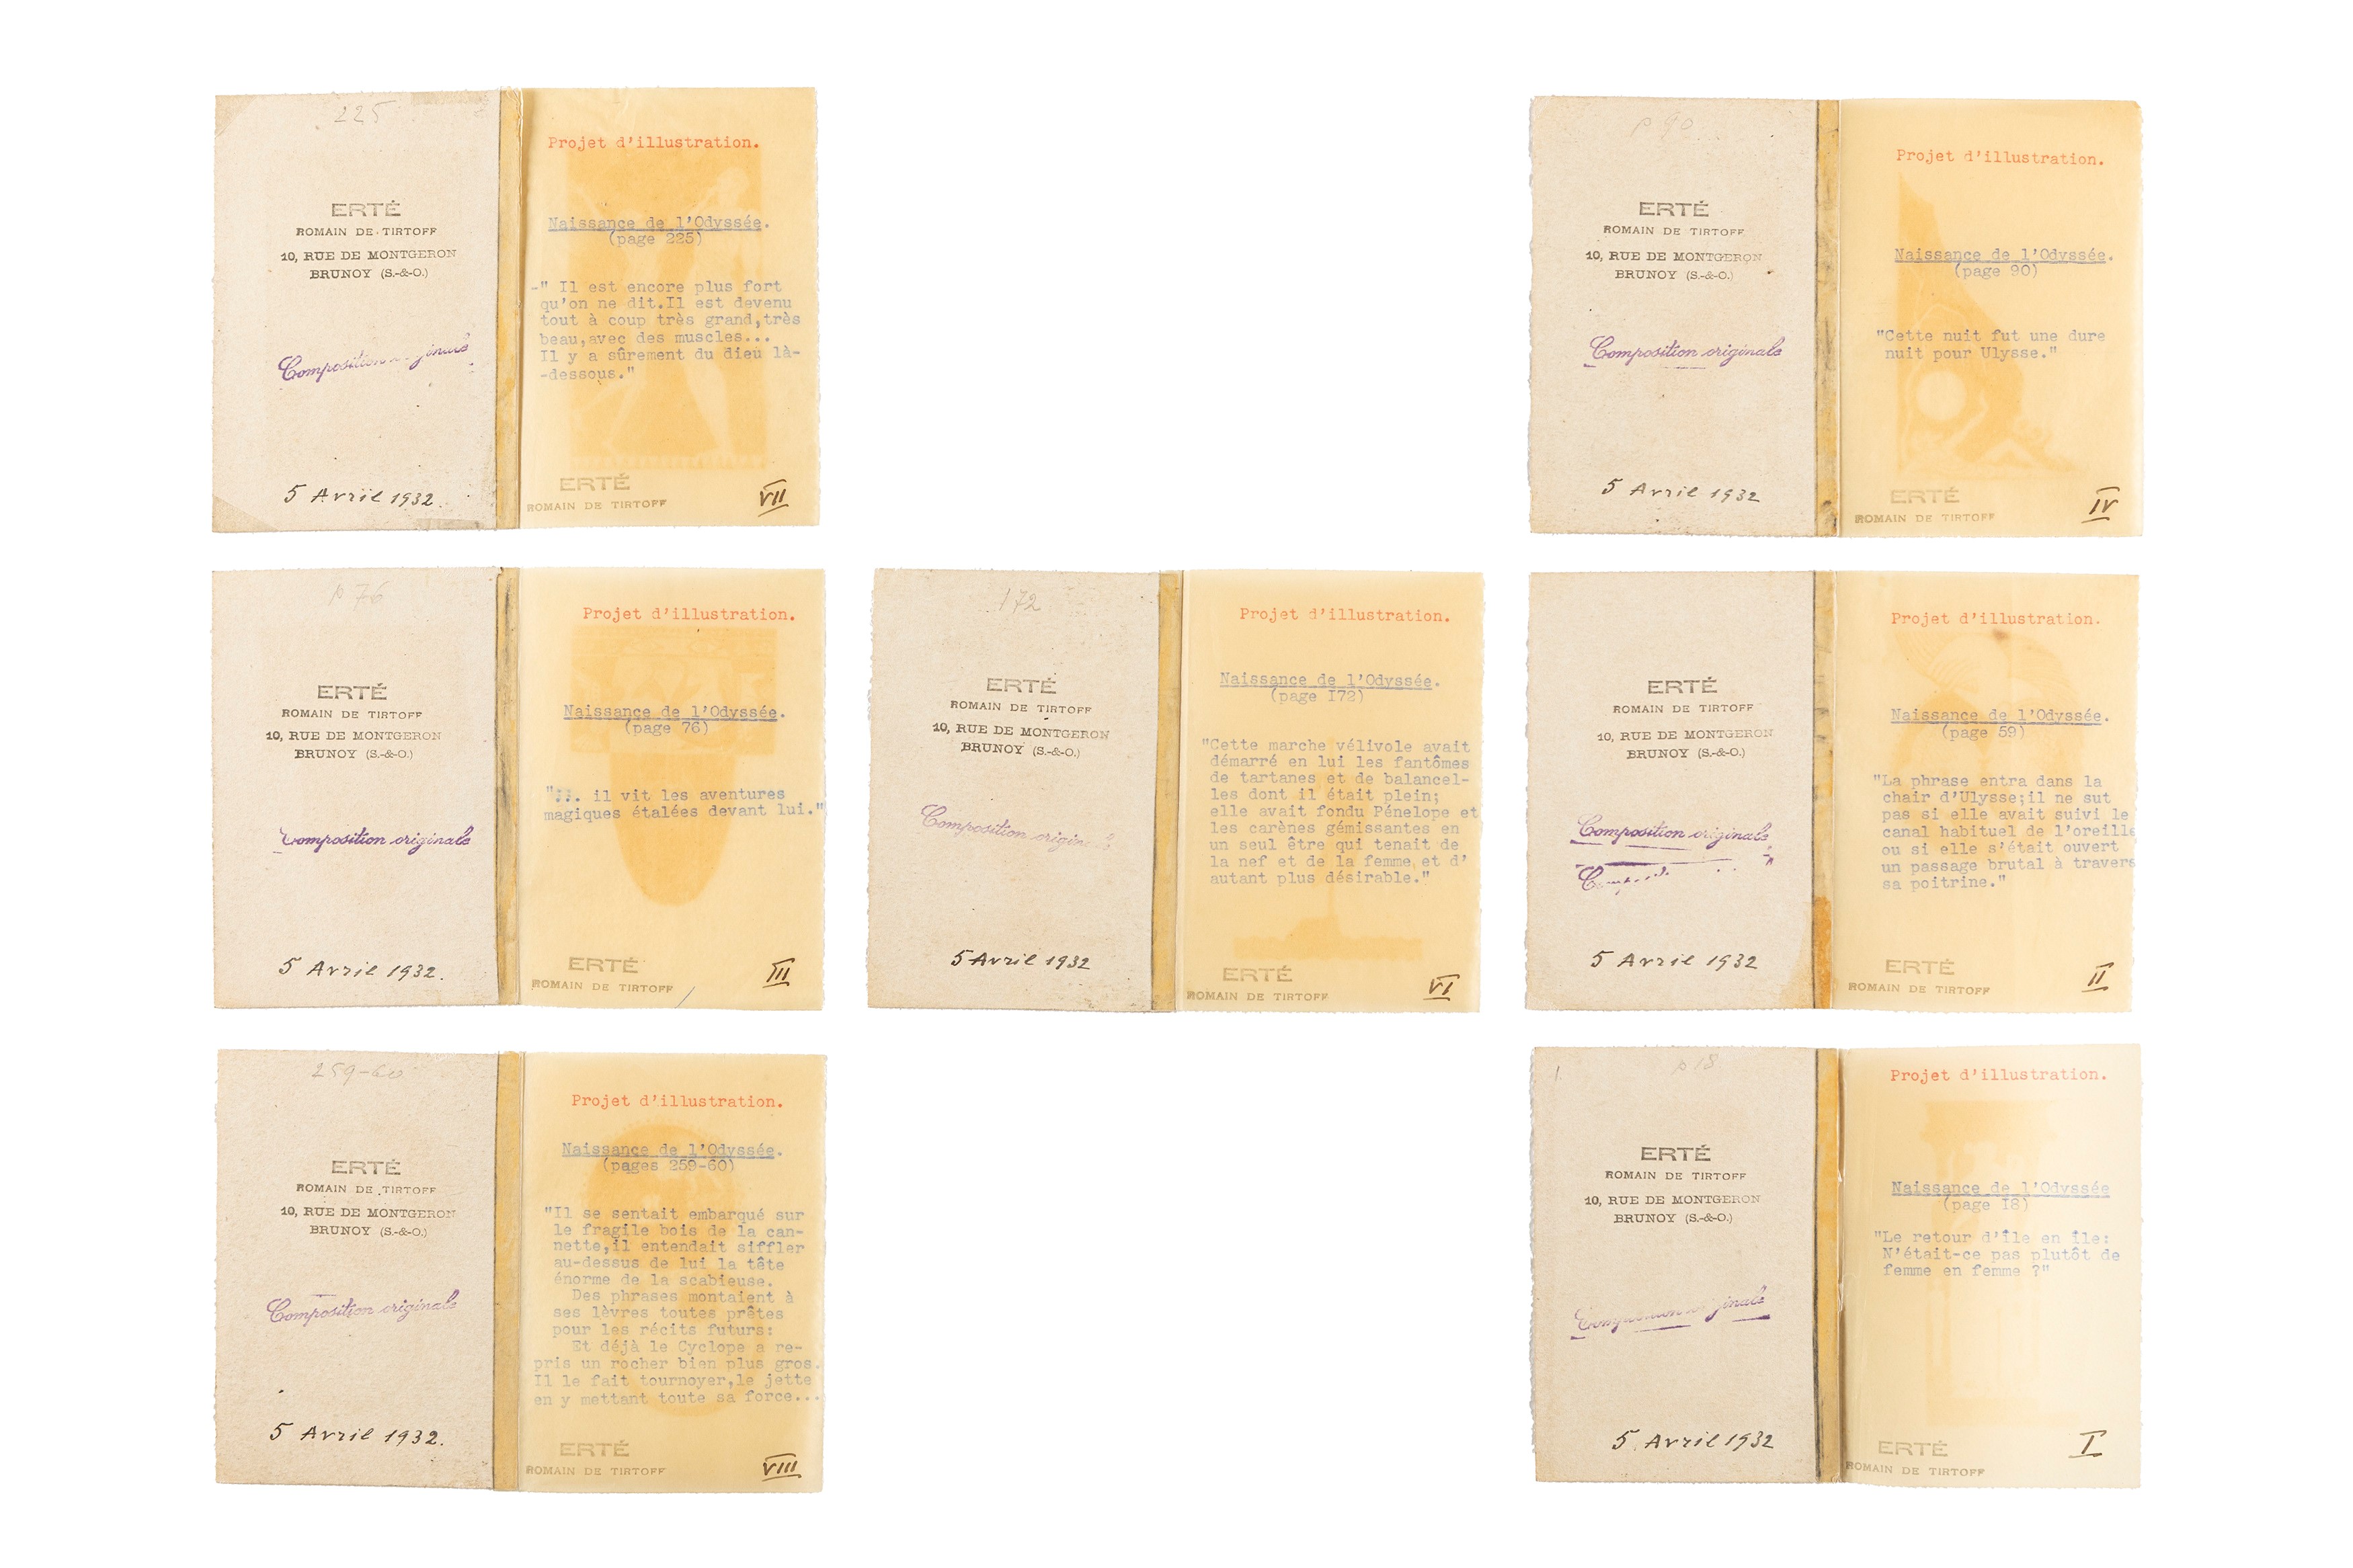 225
ERTÉ
ROMAIN DE TIRTOFF
10, RUE DE MONTGERON
BRUNOY (S.-&-O.)
Composition
5 Avril 1932.
Projet d'illustration.
Naissance de l'Odyssée.
(page 225)
-" Il est encore plus fort
qu'on ne dit.Il est devenu
tout à coup très grand,très
beau,avec des muscles...
Il y a sûrement du dieu là-
-dessous."
ERTÉ
ROMAIN DE TIRTOFF
VII
p 90
ERTÉ
ROMAIN DE TIRTOFF
10, RUE DE MONTGERON
BRUNOY (S.-&-O.)
Composition originale
5 Avril 1932
Projet d'illustration.
Naissance de l'Odyssée.
(page 90)
"Cette nuit fut une dure
nuit pour Ulysse."
ERTÉ
ROMAIN DE TIRTOFF
IV
p 76
ERTÉ
ROMAIN DE TIRTOFF
10, RUE DE MONTGERON
BRUNOY (S.-&-O.)
Composition originale
5 Avril 1932.
Projet d'illustration.
Naissance de l'Odyssée.
(page 76)
"... il vit les aventures
magiques étalées devant lui."
ERTÉ
ROMAIN DE TIRTOFF
III
172
ERTÉ
ROMAIN DE TIRTOFF
10, RUE DE MONTGERON
BRUNOY (S.-&-O.)
Composition
5 Avril 1932
Projet d'illustration.
Naissance de l'Odyssée.
(page I72)
"Cette marche vélivole avait
démarré en lui les fantômes
de tartanes et de balancel-
les dont il était plein;
elle avait fondu Pénelope et
les carènes gémissantes en
un seul être qui tenait de
la nef et de la femme et d'
autant plus désirable."
ERTÉ
ROMAIN DE TIRTOFF
VI
ERTÉ
ROMAIN DE TIRTOFF
10, RUE DE MONTGERON
BRUNOY (S.-&-O.)
Composition originale
5 Avril 1932
Projet d'illustration.
Naissance de l'Odyssée.
(page 59)
"La phrase entra dans la
chair d'Ulysse;il ne sut
pas si elle avait suivi le
canal habituel de l'oreille
ou si elle s'était ouvert
un passage brutal à travers
sa poitrine."
ERTÉ
ROMAIN DE TIRTOFF
II
259-60
ERTÉ
ROMAIN DE TIRTOFF
10, RUE DE MONTGERON
BRUNOY (S.-&-O.)
Composition originale
5 Avril 1932.
Projet d'illustration.
Naissance de l'Odyssée.
(pages 259-60)
"Il se sentait embarqué sur
le fragile bois de la can-
nette,il entendait siffler
au-dessus de lui la tête
énorme de la scabieuse.
Des phrases montaient à
ses lèvres toutes prêtes
pour les récits futurs:
Et déjà le Cyclope a re-
pris un rocher bien plus gros.
Il le fait tournoyer,le jette
en y mettant toute sa force...
ERTÉ
ROMAIN DE TIRTOFF
VIII
1.
p 18
ERTÉ
ROMAIN DE TIRTOFF
10, RUE DE MONTGERON
BRUNOY (S.-&-O.)
Composition
5 Avril 1932
Projet d'illustration.
Naissance de l'Odyssée
(page I8)
"Le retour d'île en île:
N'était-ce pas plutôt de
femme en femme ?"
ERTÉ
ROMAIN DE TIRTOFF
I